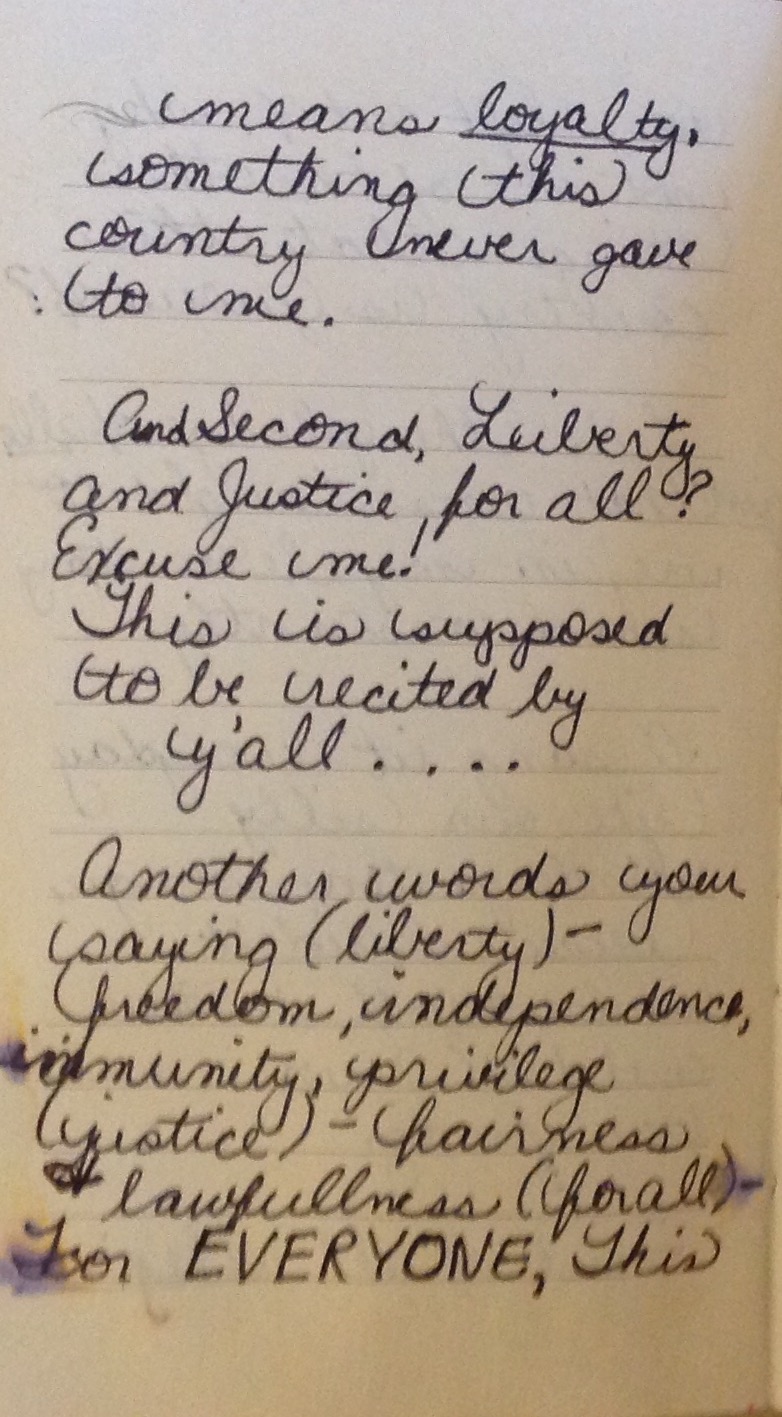 means loyalty,
something this
country never gave
to me.
And Second, Liberty
and Justice, for all?
Excuse me!
This is supposed
to be recited by
y'all . . . .
Another words your
saying (liberty) -
freedom, independence,
immunity, privilege
(justice) - fairness
& lawfullness (for all) -
For EVERYONE, This